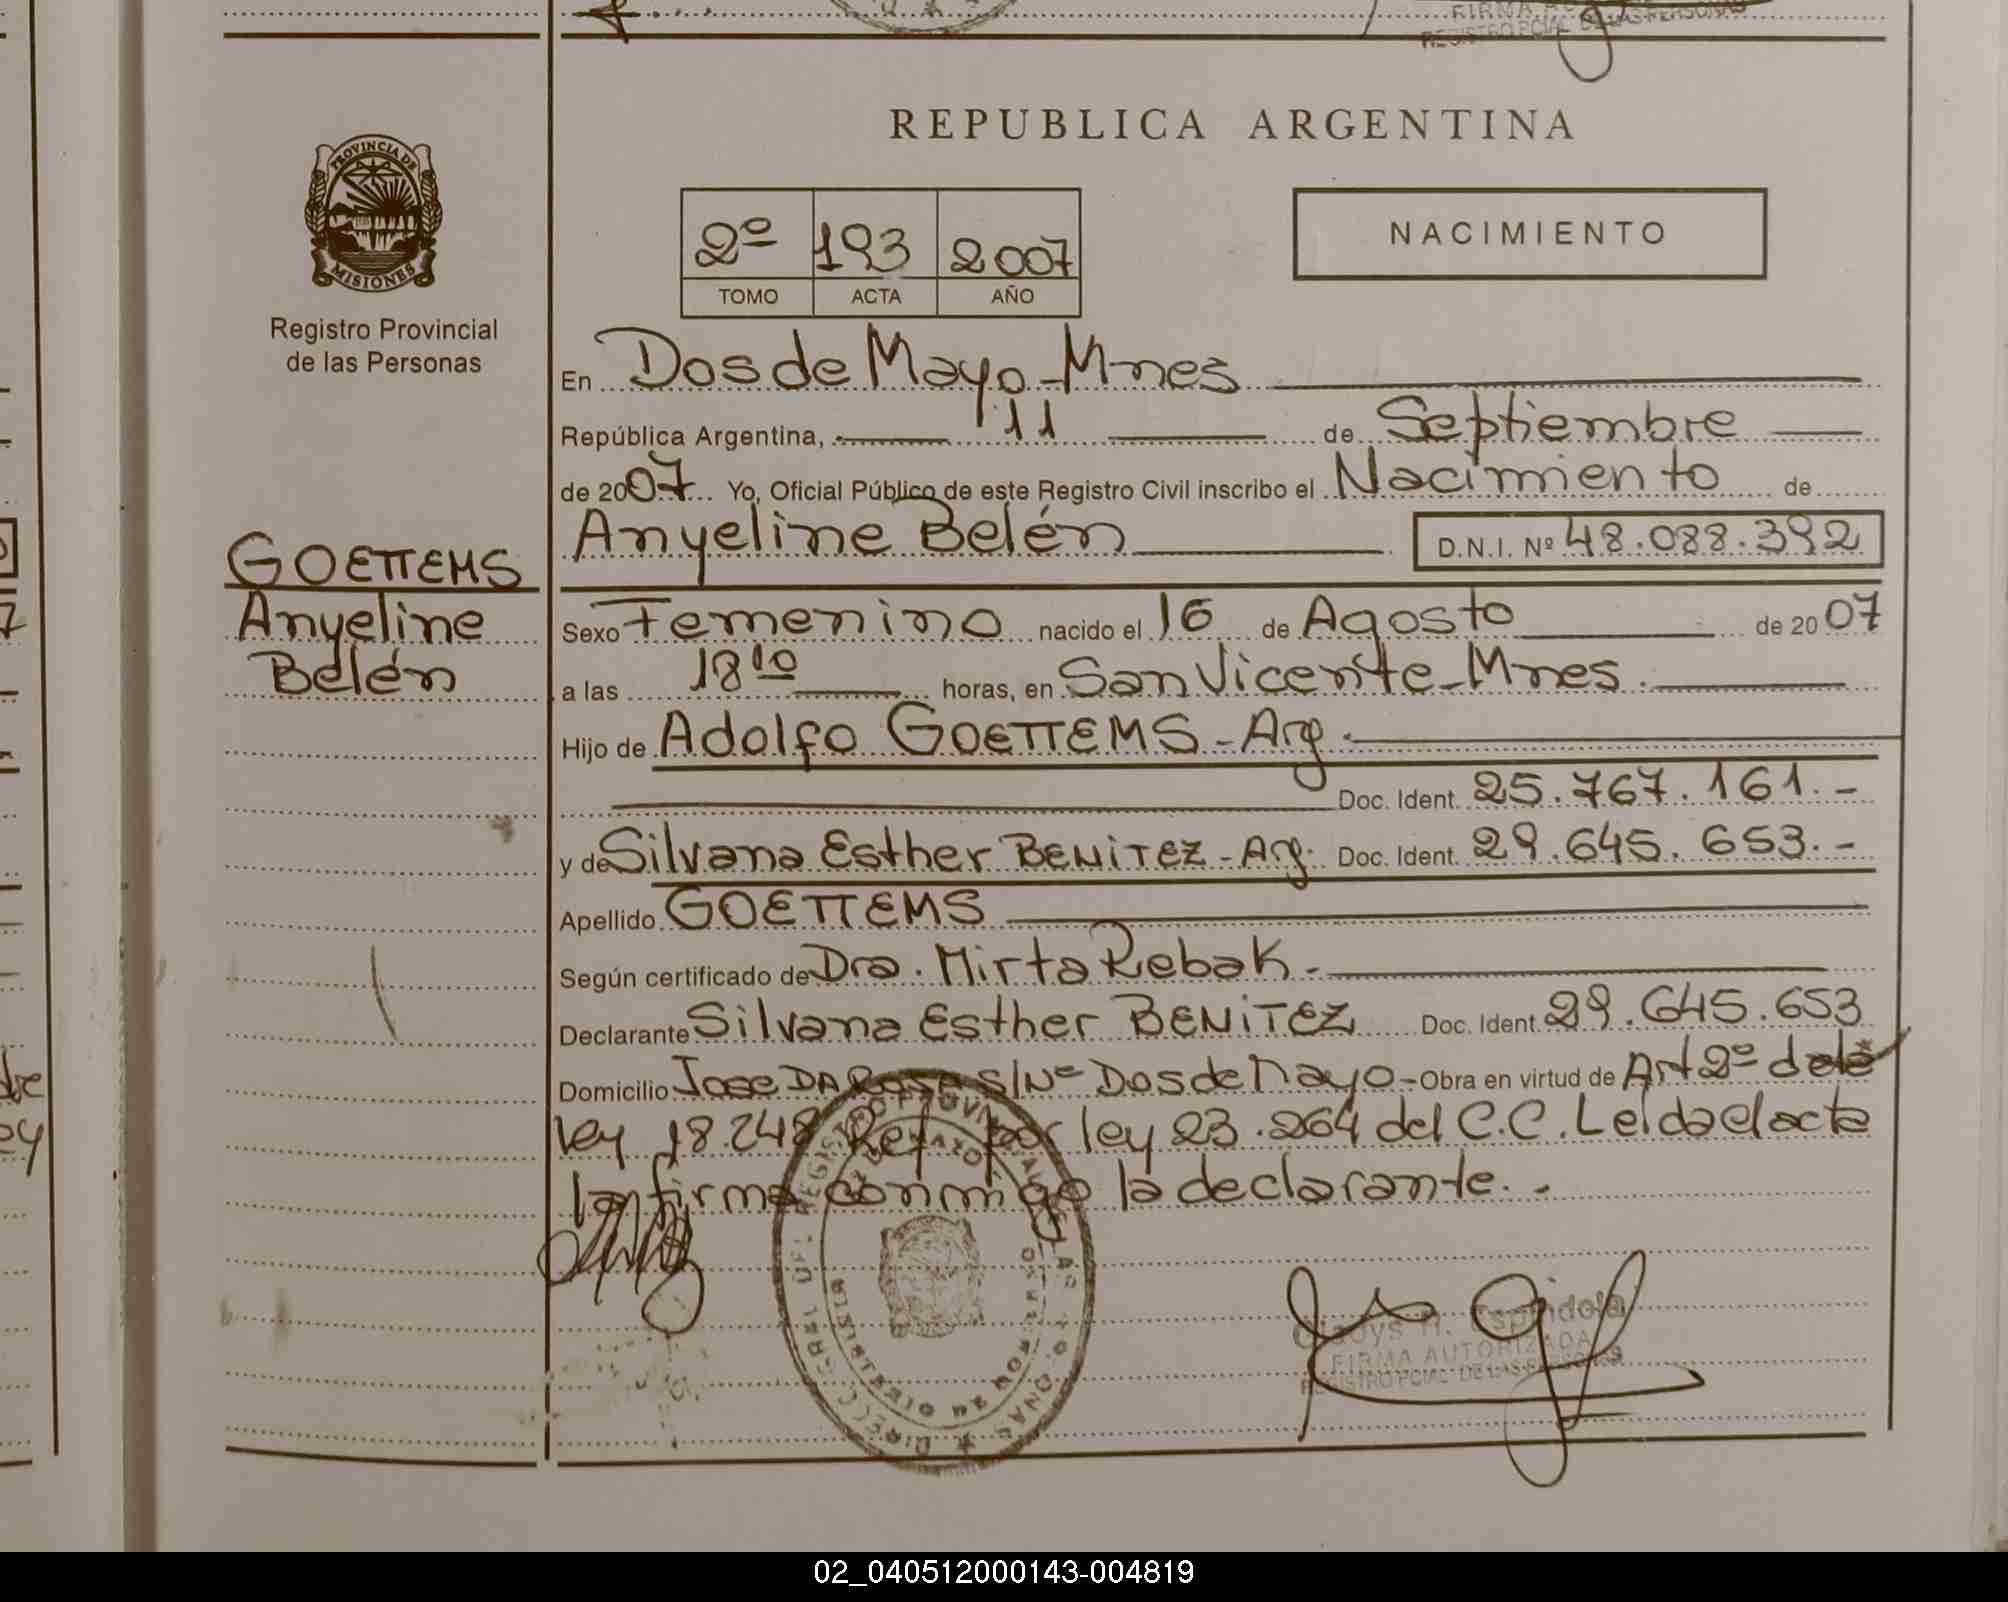 FIRMA AU
REGISTRO PCIAL DE LAS PERSONAS
REPUBLICA ARGENTINA
PROVINCIA DE
MISIONES
Registro Provincial
de las Personas
2º 193 2007
TOMO ACTA AÑO
NACIMIENTO
En Dos de Mayo - Mnes
República Argentina, 11 de Septiembre
de 2007 Yo, Oficial Público de este Registro Civil inscribo el Nacimiento de
Anyeline Belén D.N.I. Nº 48.088.392
GOETTEMS
Anyeline
Belén
Sexo Femenino nacido el 16 de Agosto de 2007
a las 18 10 horas, en San Vicente - Mnes.
Hijo de Adolfo GOETTEMS - Arg.
Doc. Ident. 25.767.161.-
y de Silvana Esther BENITEZ - Arg. Doc. Ident. 29.645.653.-
Apellido GOETTEMS
Según certificado de Dra. Mirta Rebak.
Declarante Silvana Esther BENITEZ Doc. Ident. 29.645.653
Domicilio Jose DA ROSA S/Nº Dos de Mayo - Obra en virtud de Art 2º de la
ley 18.248 Ref por ley 23.264 del C.C. Leída el acta
la firma conmigo la declarante. -
Gladys N. Espindola
FIRMA AUTORIZADA
REGISTRO PCIAL DE LAS PERSONAS
02_040512000143-004819